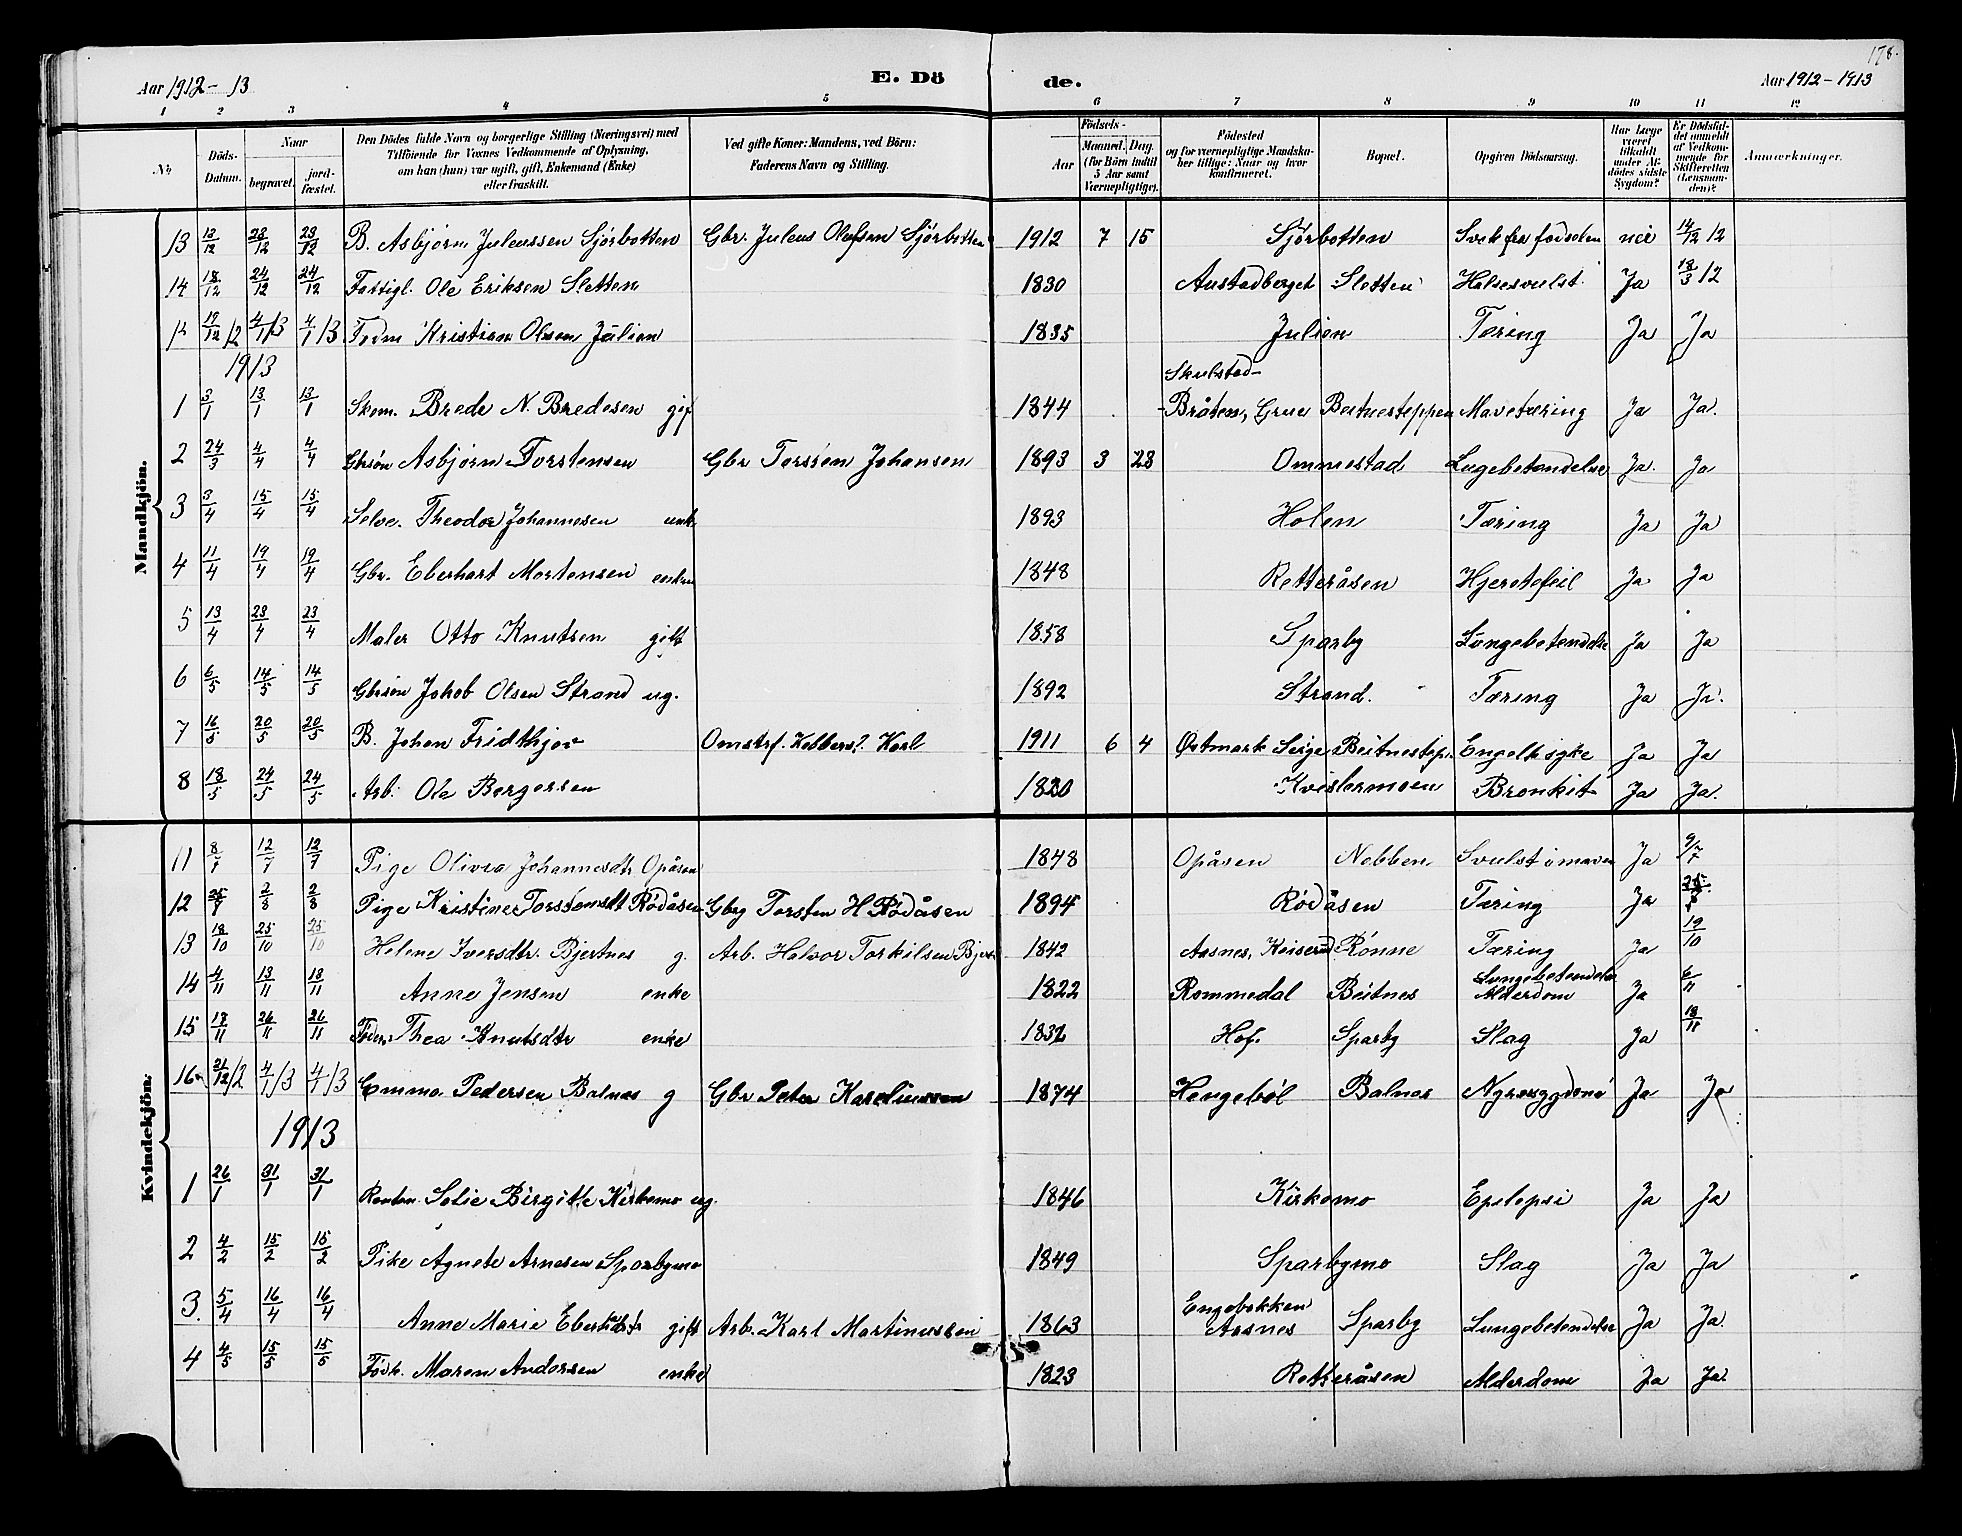 178.
Aar 1912-13 E. Dö de. Aar 1912-1913
1 2 3 4 5 6 7 8 9 10 11 12
No. Döds-Datum. Naar begravet. jordfæstet. Den Dödes fulde Navn og borgerlige Stilling (Næringsvei) med Tilföiende for Voxnes Vedkommende af Oplysning, om han (hun) var ugift, gift, Enkemand (Enke) eller fraskilt. Ved gifte Koner: Mandens, ved Börn: Faderens Navn og Stilling. Födsels- Aar Maaned. Dag. (for Börn indtil 5 Aar samt Værnepligtige). Födested og for værnepligtige Mandskaber tillige: Naar og hvor konfirmeret. Bopæl. Opgiven Dödsaarsag. Har Læge været tilkaldt under Afdödes sidste Sygdom? Er Dödsfaldet anmeldt af Vedkommende for Skifteretten (Lensmanden)? Anmærkninger.
Mandkjön.
13 13/12 23/12 23/12 B. Asbjørn Juleussen Sjørbotten Gbr. Juleus Olufsen Sjørbotten 1912 7 15 Sjørbotten Svek fra fødselen nei 14/12 12
14 18/12 24/12 24/12 Fattigl. Ole Eriksen Sletten 1830 Austadberget Sletten Halssvulst Ja 18/3 12
19/12 12 4/1 13 4/1 13 Kristian Olsen Julien 1835 Julien Tæring Ja Ja
1913
1 3/1 13/1 13/1 Skom. Brede N. Bredesen gif 1844 Skulstad-Bråten, Grue Beitnesteppen Mavetæring Ja Ja.
2 24/3 4/4 4/4 Gbrsøn Asbjørn Torstensen Gbr Torsten Johansen 1893 3 23 Ommestad Lugebetændelse Ja. Ja
3 3/4 15/4 15/4 Selve. Theodor Johannesen 1893 Holen Tæring Ja Ja
4 11/4 19/4 19/4 Gbr. Eberhart Mortensen 1848 Retteråsen Hjertefeil Ja Ja
5 13/4 23/4 23/4 Maler Otto Knutsen gift 1858 Sparby Lungebetendelse Ja Ja
6 6/5 14/5 14/5 Gbrsøn Jakob Olsen Strand ug. 1892 Strand. Tæring Ja Ja.
7 16/5 20/5 20/5 B. Johan Fridthjov Omstrf. Kobbers? Karl 1911 6 4 Østmark Serige Beitnestep. Engelksyke Ja Ja
8 18/5 24/5 24/5 Arb. Ole Bergersen 1820 Kvislermoen Bronkit Ja Ja.
Kvindekjön.
11 8/7 12/7 12/7 Pige Olivea Johannesdtr Opåsen 1848 Opåsen Nabben Svulst i maven Ja 9/7
12 25/7 2/8 2/8 Pige Kristine Torstensdt Rødåsen Gbrg Torsten H Rødåsen 1894 Rødåsen Tæring Ja
13 18/10 25/10 25/10 Helene Iversdtr. Bjertnes g. Arb. Halvor Torkilsen Bjert 1842 Aasnes, Keiserud Rønne Tæring Ja 19/10
14 4/11 13/11 13/11 Anne Jensen enke 1822 Rommedal Beitnes Lungebetendelse Alderdom Ja 6/11
15 18/11 26/11 26/11 Thea Knutsdtr enke 1832 Hof. Sparby Slag Ja 18/11
16 21/12 12 4/1 13 4/1 13 Emma Pedersen Balnes g Gbr Peter Kareliussen 1874 Hengebøl Balnes Ja Ja
1913
1 26/1 31/1 31/1 Solie Birgitte Kirkomo ug. 1846 Kirkomo Epelepsi Ja Ja
2 4/2 15/2 15/2 Pike Agnete Arnesen Sparbymo 1849 Sparbymo Slag Ja Ja
3. 5/4 16/4 16/4 Anne Marie gift Arb. Karl Martinussen 1863 Engebakken Aasnes Sparby Lungebetendelse Ja Ja.
4 4/5 15/5 15/5 Maren Andersen enke 1823 Retteråsen Alderdom Ja Ja.